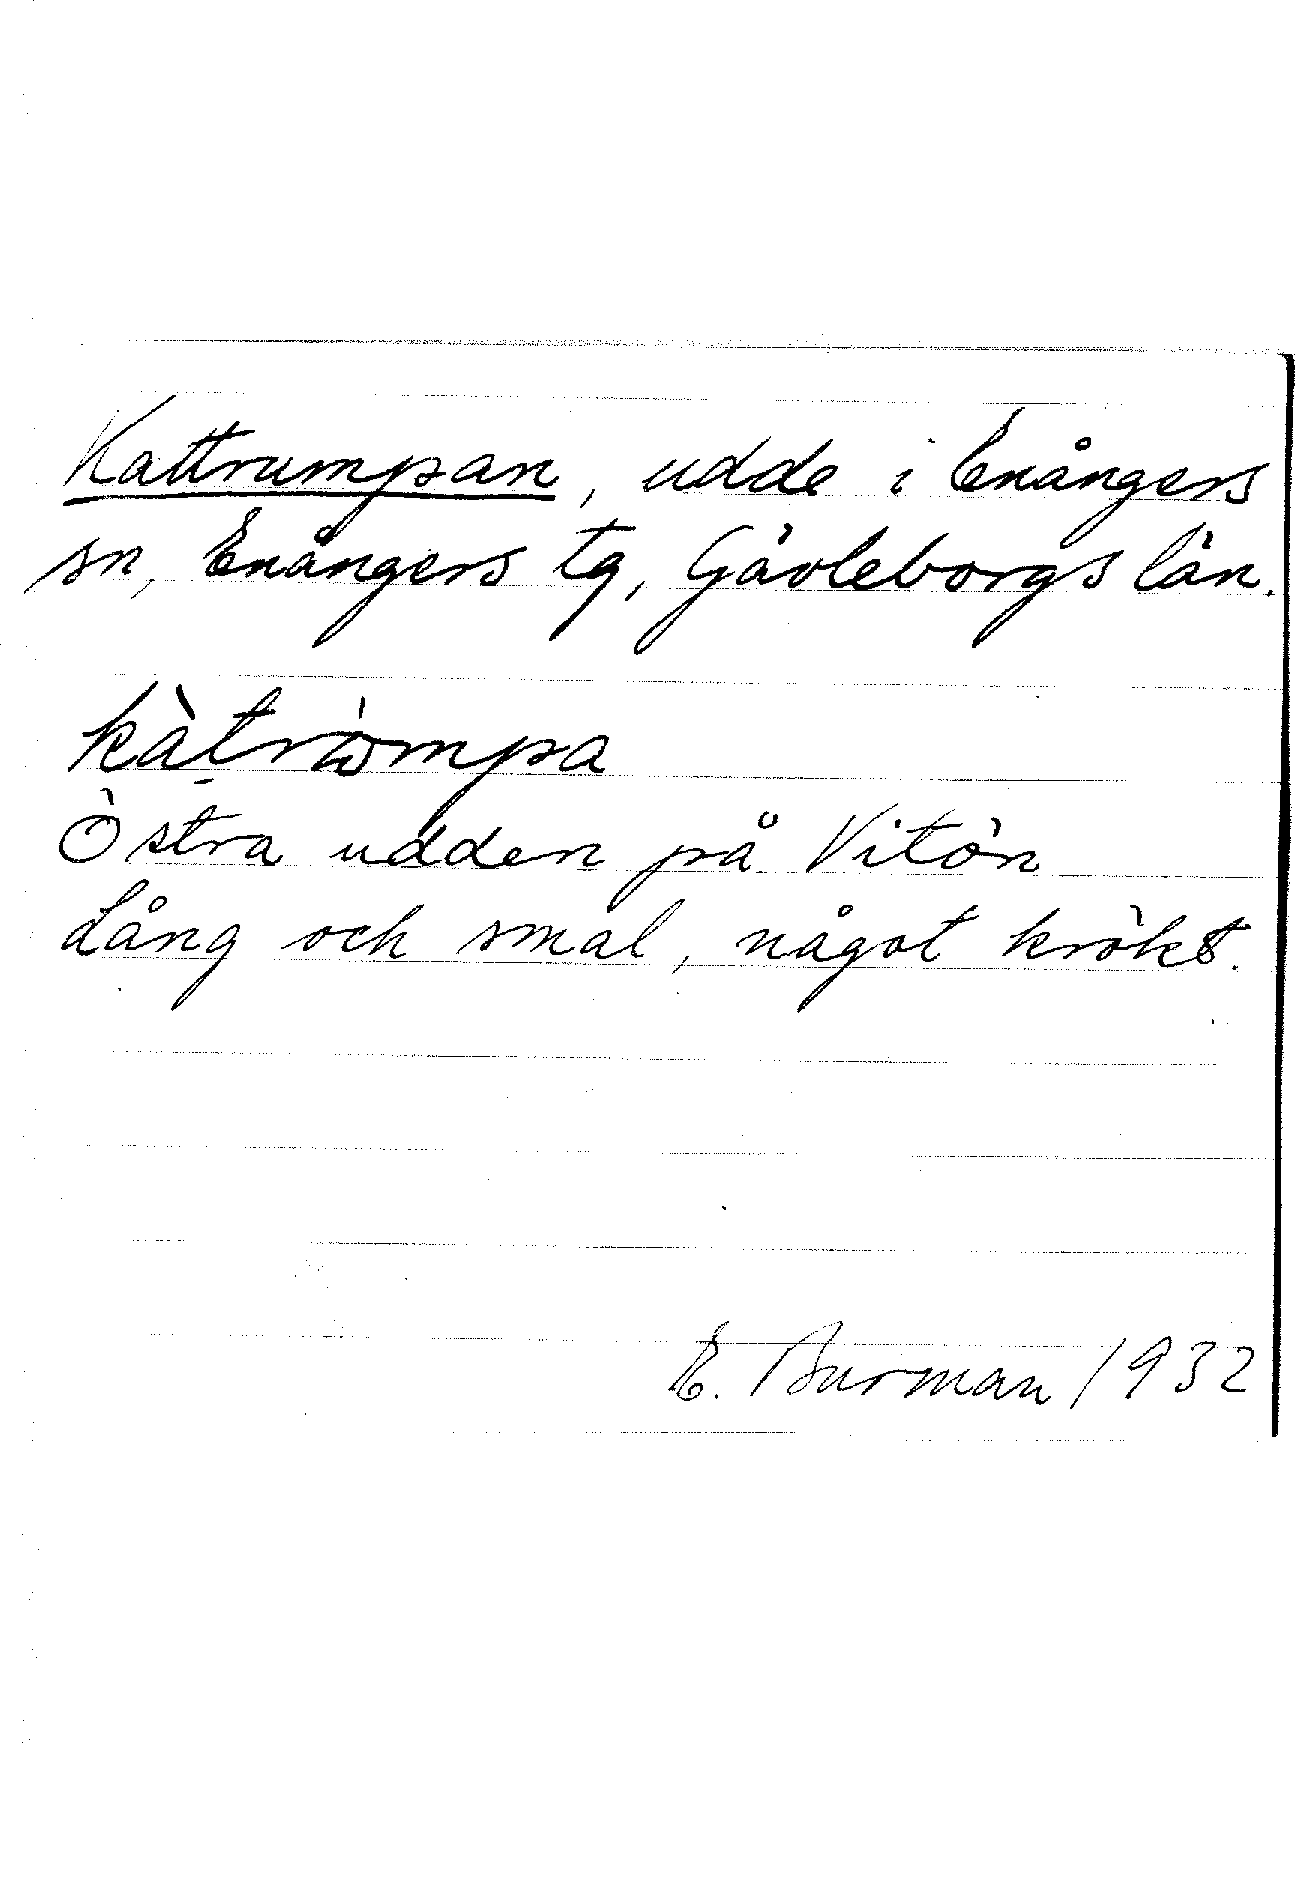 Kattrumpan, udde i Enångers
sn, Enångers tg, Gävleborgs län.
kàt̠römpa
Östra udden på Vitön
Lång och smal, något krökt.
E. Burman 1932